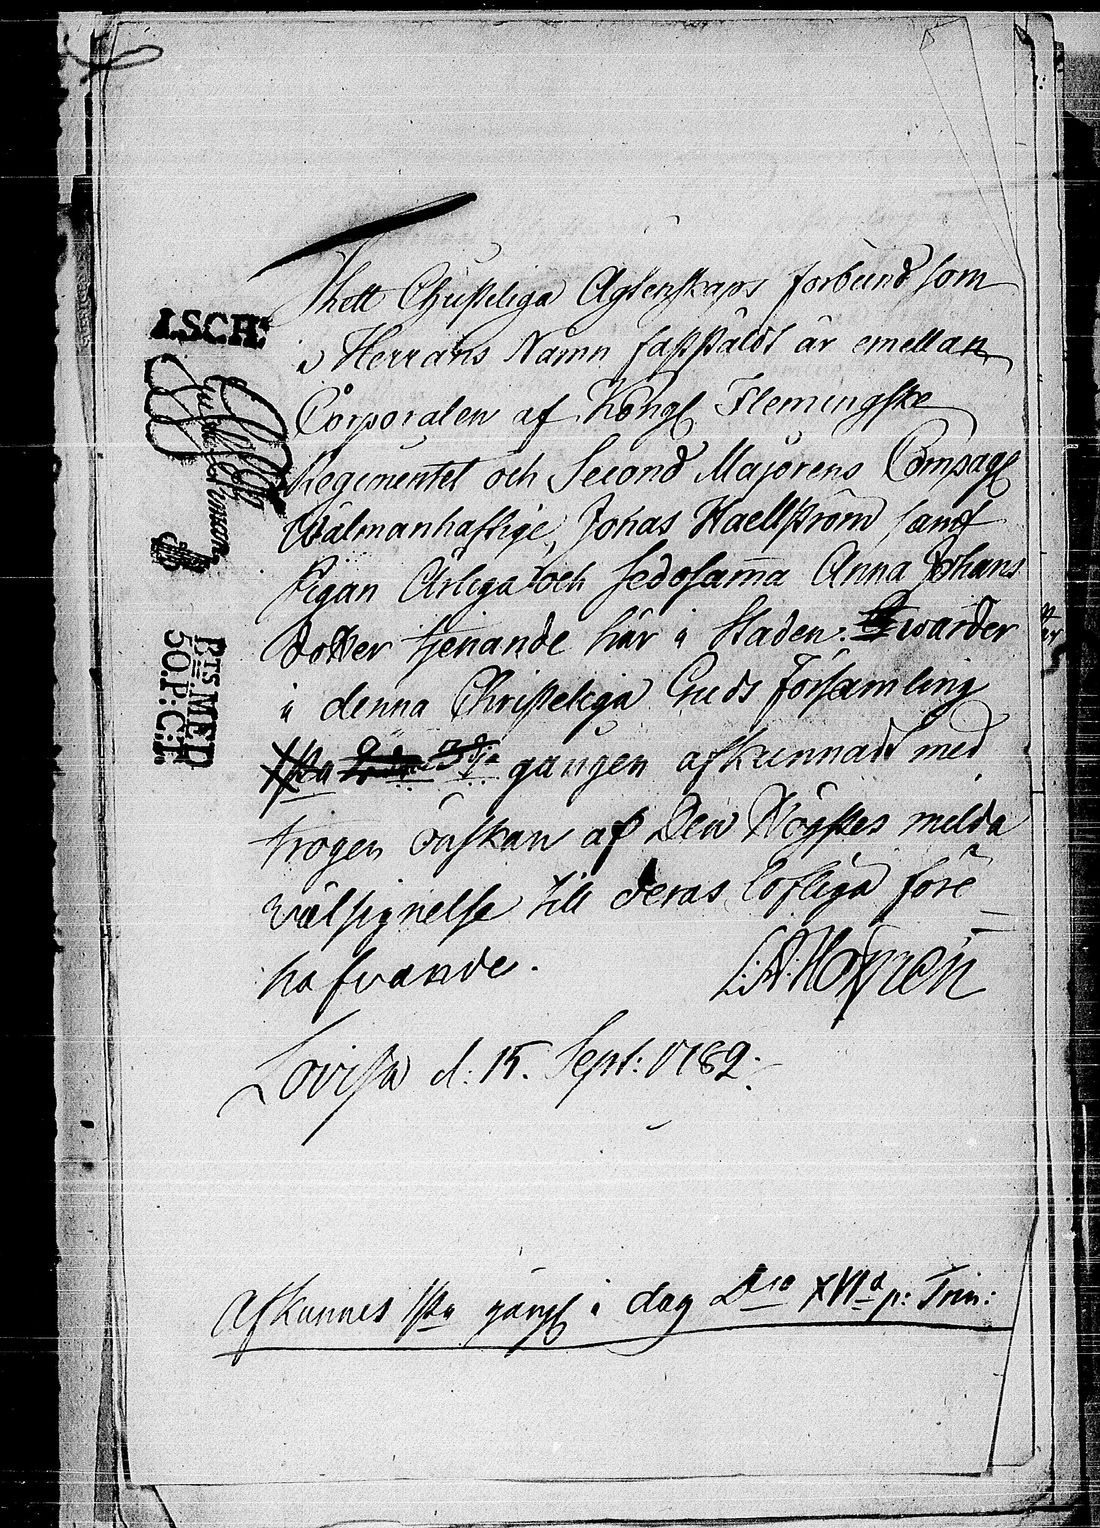 Thett Christeliga Agtenskaps forbund som
i Herrans Namn faststäldt är emellan
Corporalen af Kongl Flemingske
Regimentet och Second Majorens Compagl
Wälmanhaftige Johas Haellström samt
Pigan Ärliga och sedosamma Anna Johans
dotter tjenande här i Staden. warder
i denna Christeliga Guds Församling
1sta 2dra 3dje gången afkunnadt med
trogen önskan af Den Högstes milda
wälsignelse till deras lofliga före
hafvande.
Lovisa d: 15. Sept: 1782.
Afkunnes 1sta gångl i dag Dca XVIa p: Trin:
I.SCH:
BTS MED
50.P:C:T.